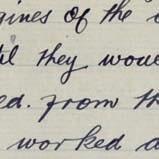 gines of the
til they woul
ed. from th
worked a